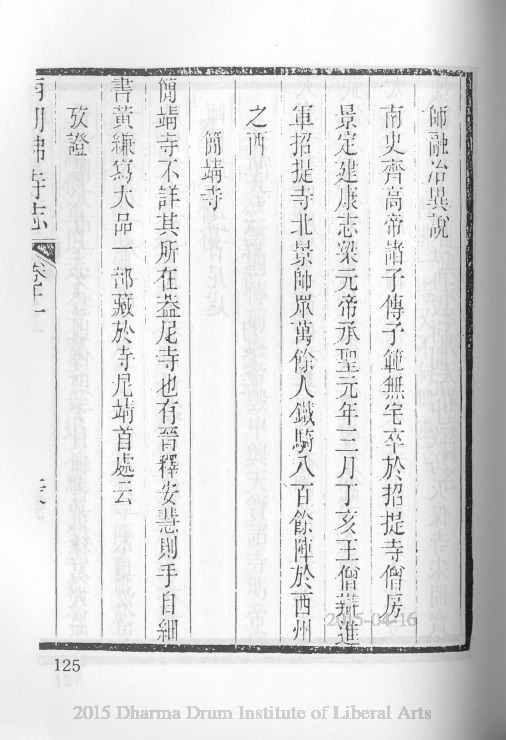 師融冶異說
南史齊高帝諸子傳子範無宅卒於招提寺僧房
景定建康志梁元帝承聖元年三月丁亥王僧辯進
軍招提寺北景師眾萬餘人鐵騎八百餘陣於西州
之西
簡靖寺
簡靖寺不詳其所在葢尼寺也有晉釋安慧則手自細
書黃縑寫大品一部藏於寺尼靖首處云
攷證
南朝佛寺志
卷上
125
2015-04-16
2015 Dharma Drum Institute of Liberal Arts